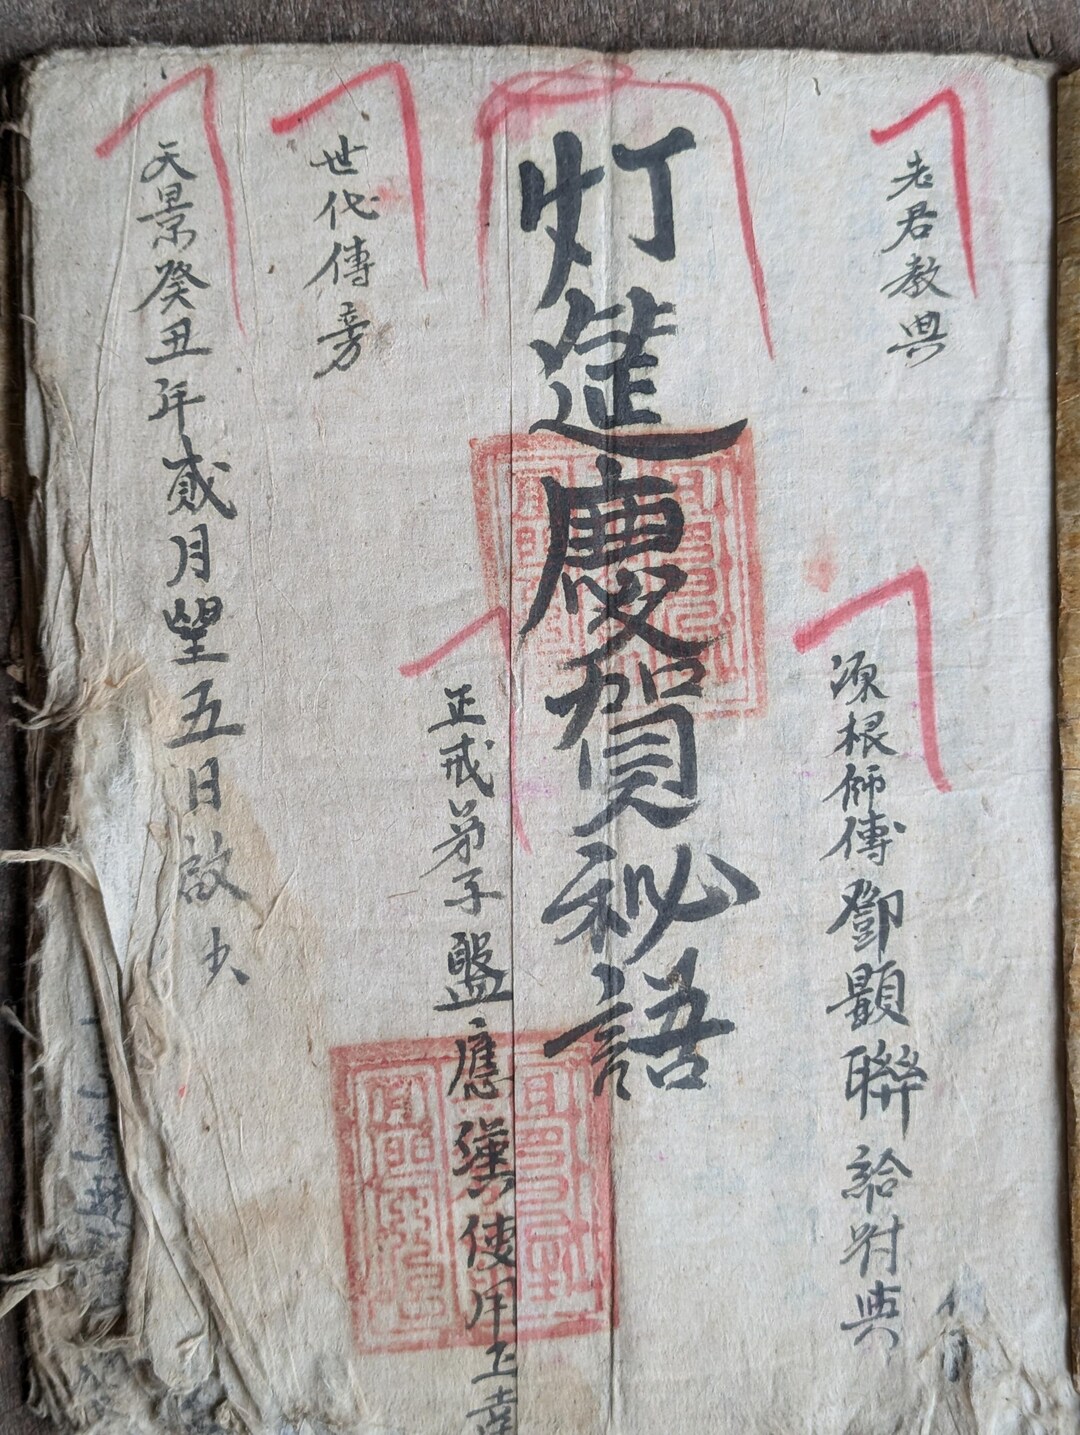 老君教典
源根師傳鄧顯聯給付典
灯筵慶賀秘語
正戒弟子盤應漢使用上
世代傳
天景癸丑年貳月望五日啟